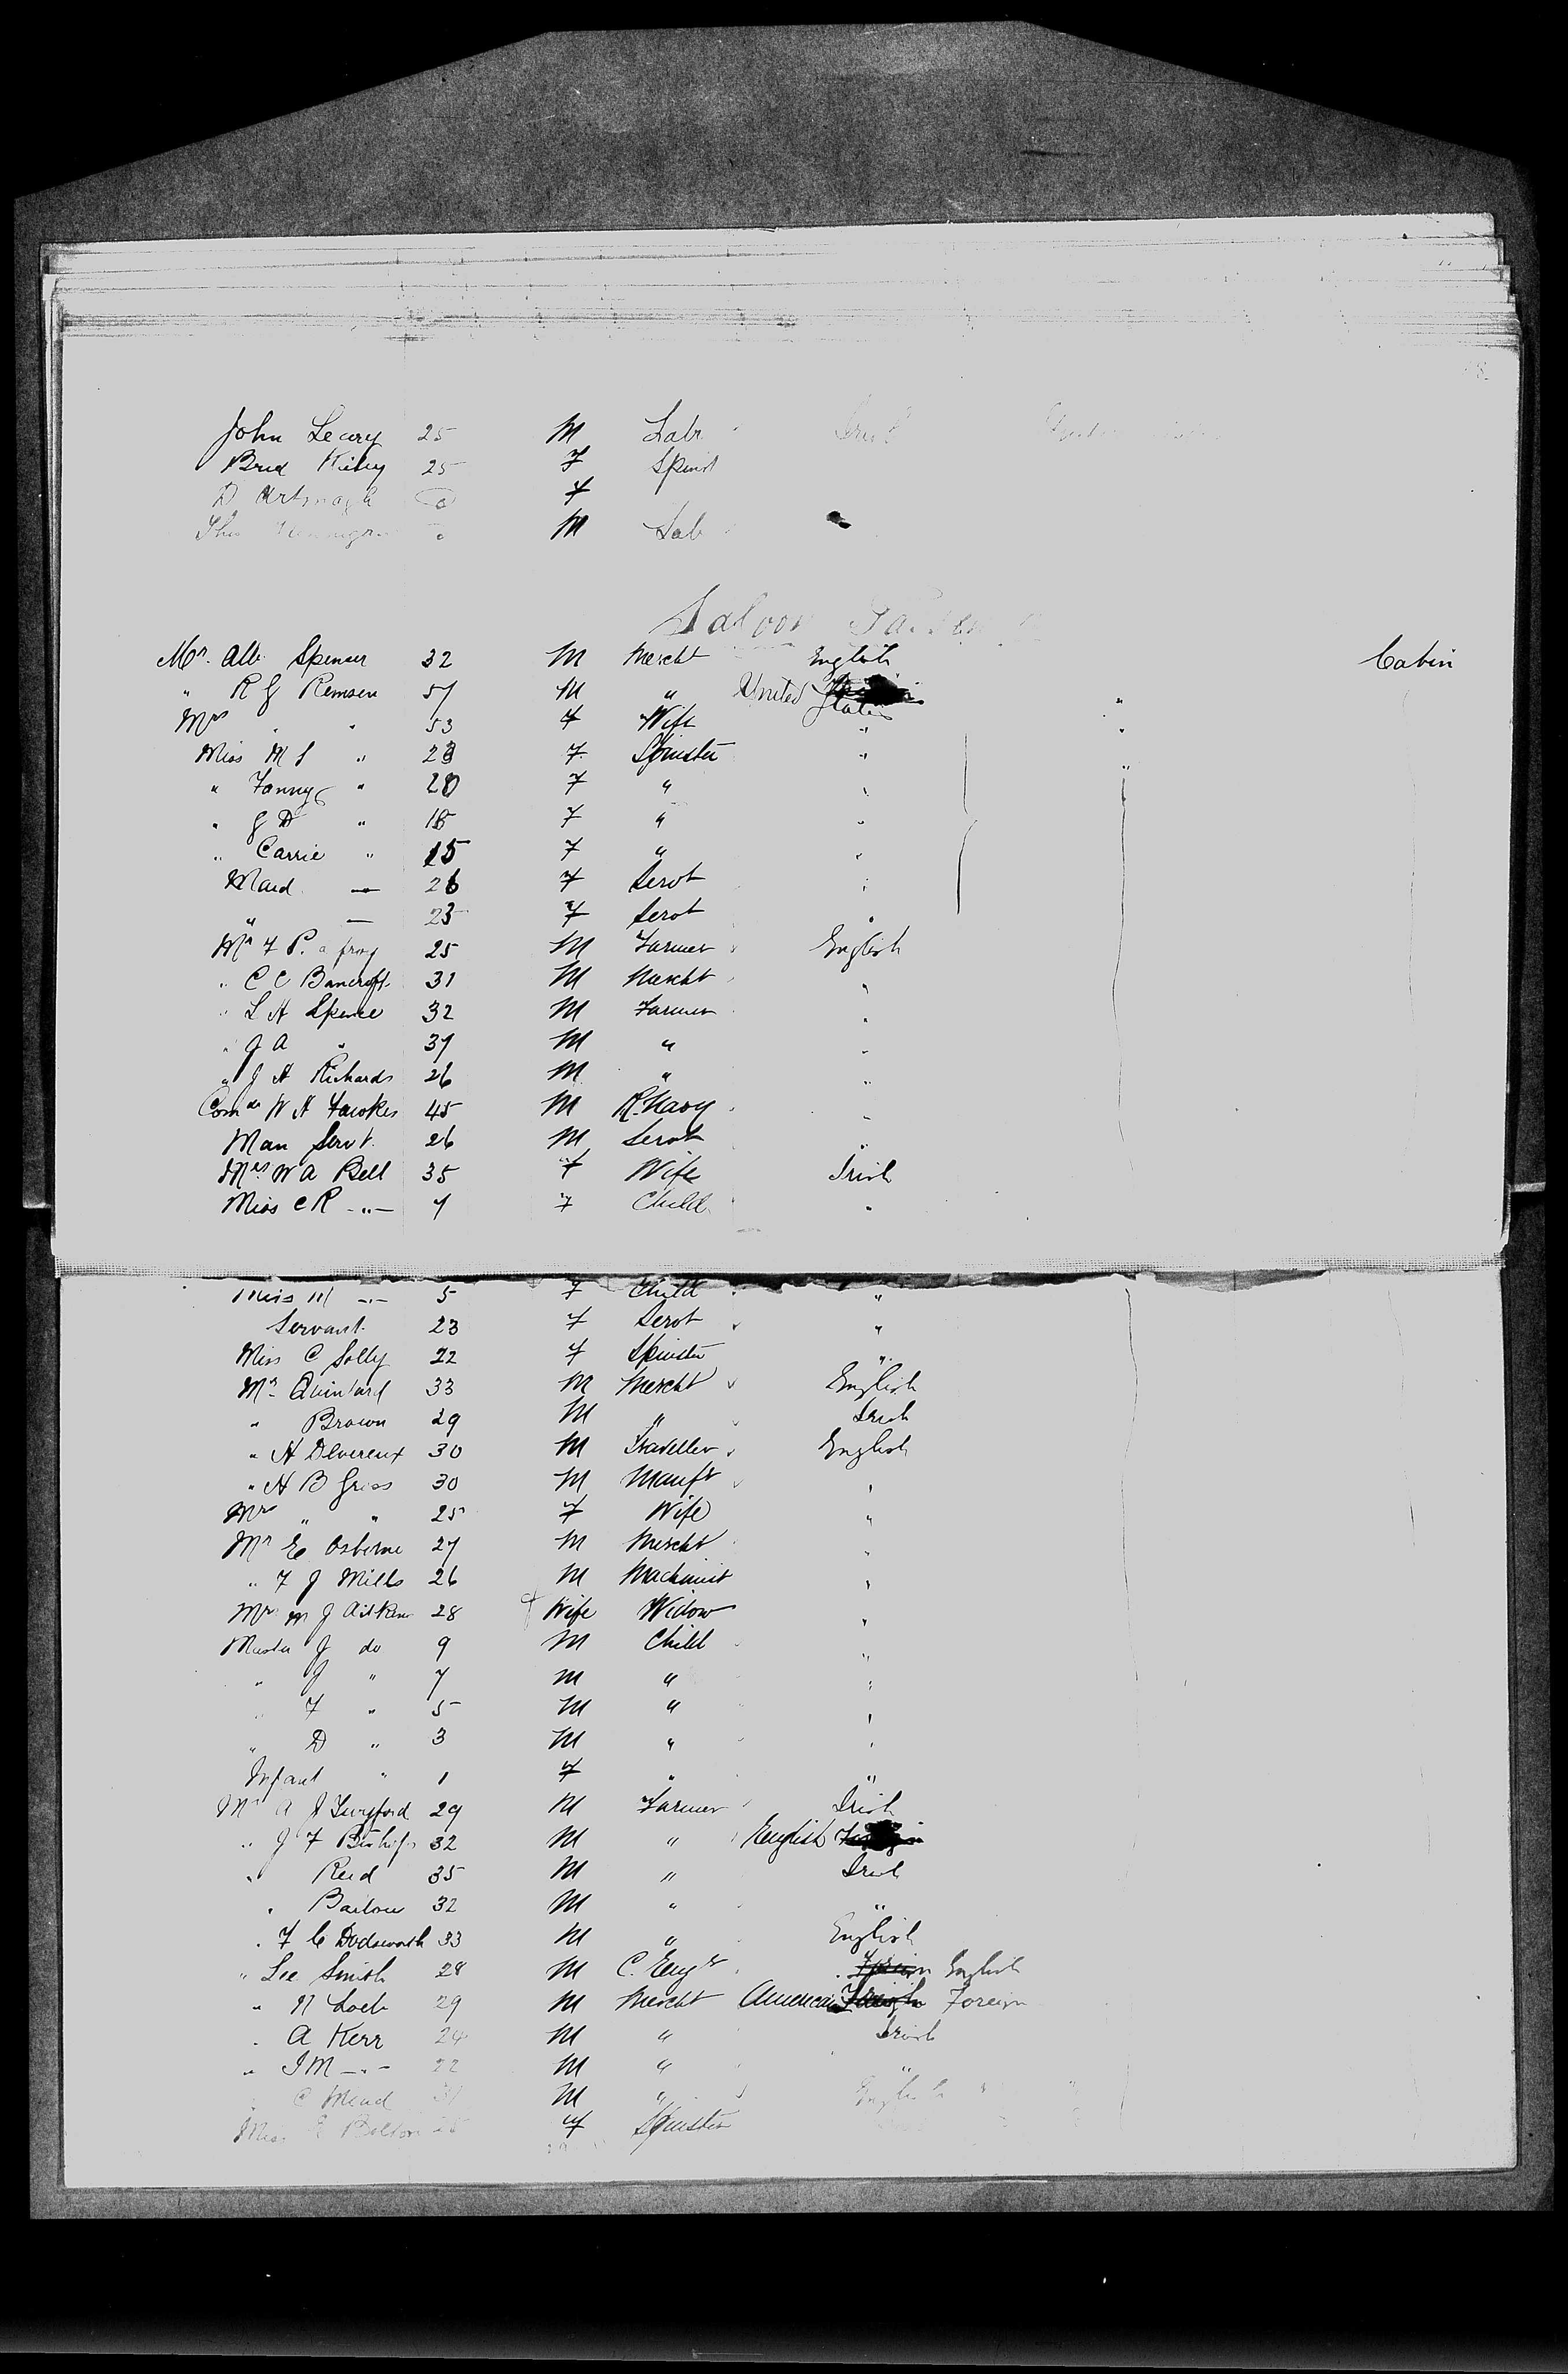 John Leary 25 M Labr Irish
Brid 25 F Spinst
D F
Thos M Lab
Saloon
Mr. Alb Spencer 32 M Mercht English Cabin
" R G Remsen 57 M " United States "
Mrs " " 53 F Wife " "
Miss M S " 23 F Spinster " "
" Fanny " 20 F "
" G D " 18 F " "
" Carrie " 15 F " "
Maid — 26 F Servt "
" — 23 F Servt "
Mr F P. 25 M Farmer English
" C C Bancroft 31 M Mercht "
" L H Spence 32 M Farmer "
" J A " 37 M " "
" J H Richards 26 M " "
Comdr W H Fawkes 45 M R. Navy "
Man Servt. 26 M Servt "
Mrs W A Bell 35 F Wife Irish
Miss C R —"— 7 F Child "
Miss M —"— 5 F Child "
Servant 23 F Servt "
Miss C Solly 22 F Spinster "
Mr Quintard 33 M Mercht English
" Brown 29 M " Irish
" H Devereux 30 M Traveller English
" H B Griss 30 M Manufr "
Mrs " " 25 F Wife "
Mr E Osborne 27 M Mercht "
" F J Mills 26 M Machinist "
Mrs M J Aitken 28 F Wife Widow "
Master J do 9 M Child "
" J " 7 M " "
" F " 5 M " "
" D " 3 M " "
Infant " 1 F " "
Mr A J Twyford 29 M Farmer Irish
" J F Bishop 32 M " English
" Reid 35 M " Irish
" Barlow 32 M " "
" F C Dodsworth 33 M " English
" Lee Smith 28 M C. Engr English
" N Loeb 29 M Mercht American Foreign Foreign
" A Kerr 24 M " Irish
" I M —"— 22 M " "
C Mead 31 M " English
Miss E Bolton 25 F Spinster